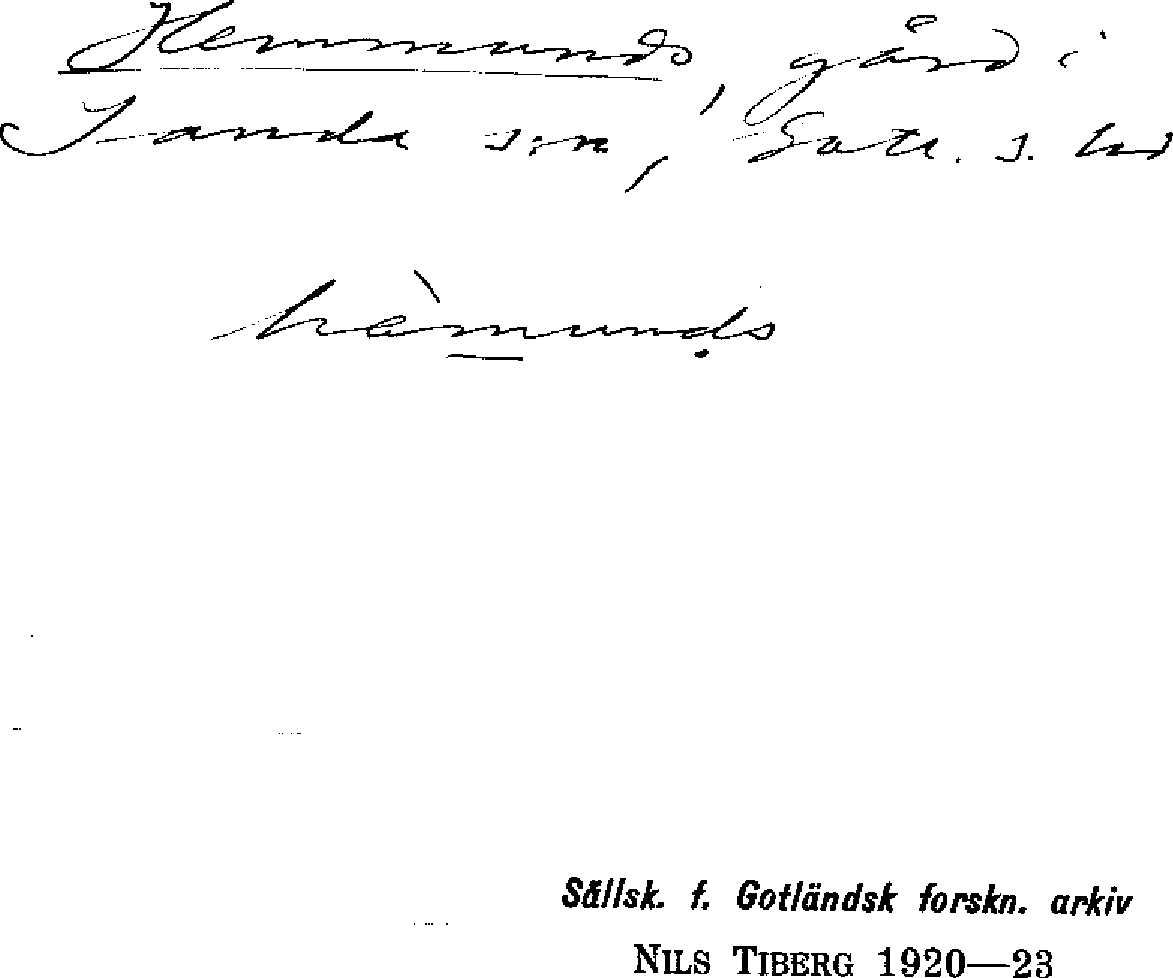 Hemmunds, gård i
Sanda s:n, Gotl. s. hd
hèmunds
Sällsk. f. Gotländsk forskn. arkiv
NILS TIBERG 1920—23